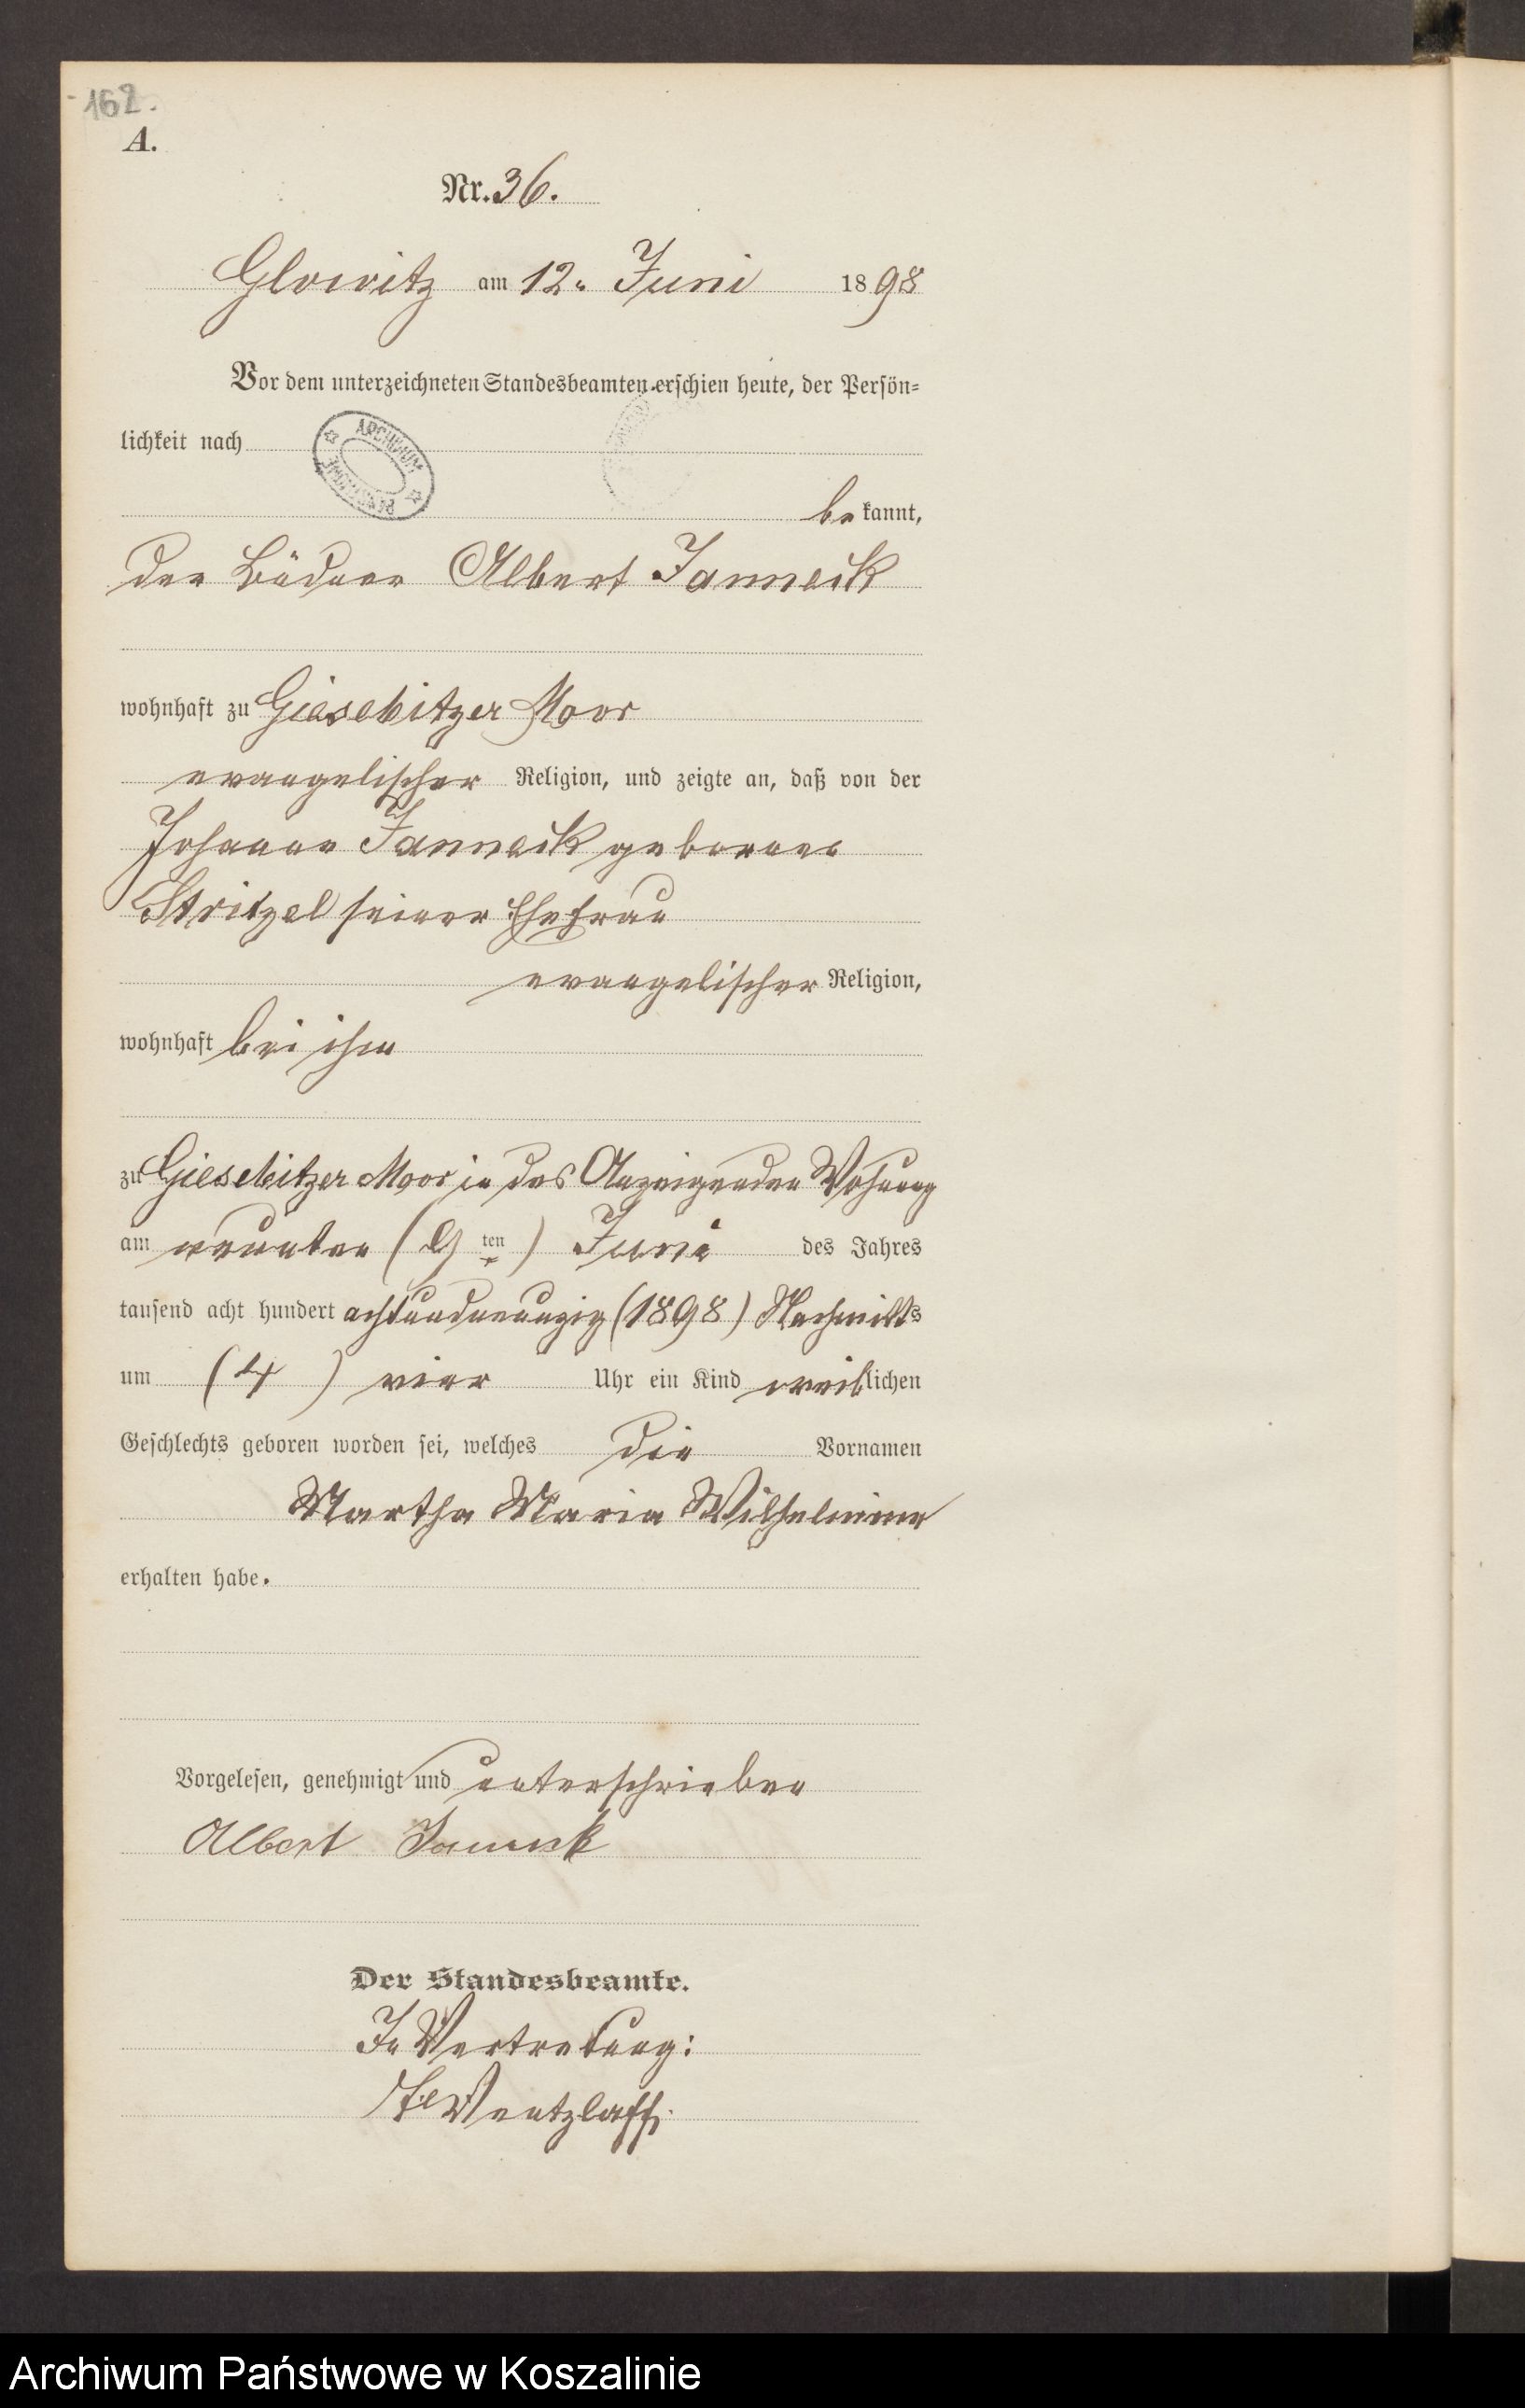 162.
A.
Nr. 36.
Glowitz am 12. Juni 1898
Vor dem unterzeichneten Standesbeamten erschien heute, der Persön=
lichkeit nach
ARCHIWUM
PAŃSTWOWE
bekannt,
der Büdner Albert Janneck
wohnhaft zu Giesebitzer Moor
evangelischer Religion, und zeigte an, daß von der
Johanne Janneck geborner
Stritzel seiner Ehefrau
evangelischer Religion,
wohnhaft bei ihm
zu Giesebitzer Moor in des Anzeigenden Wohnung
am neunten (9 ten) Juni des Jahres
tausend acht hundert achtundneunzig (1898) Nachmitts
um (4) vier Uhr ein Kind weiblichen
Geschlechts geboren worden sei, welches die Vornamen
Martha Maria Wilhelmine
erhalten habe.
Vorgelesen, genehmigt und unterschrieben
Albert Janneck
Der Standesbeamte.
In Vertretung:
Wentzlaff.
Archiwum Państwowe w Koszalinie